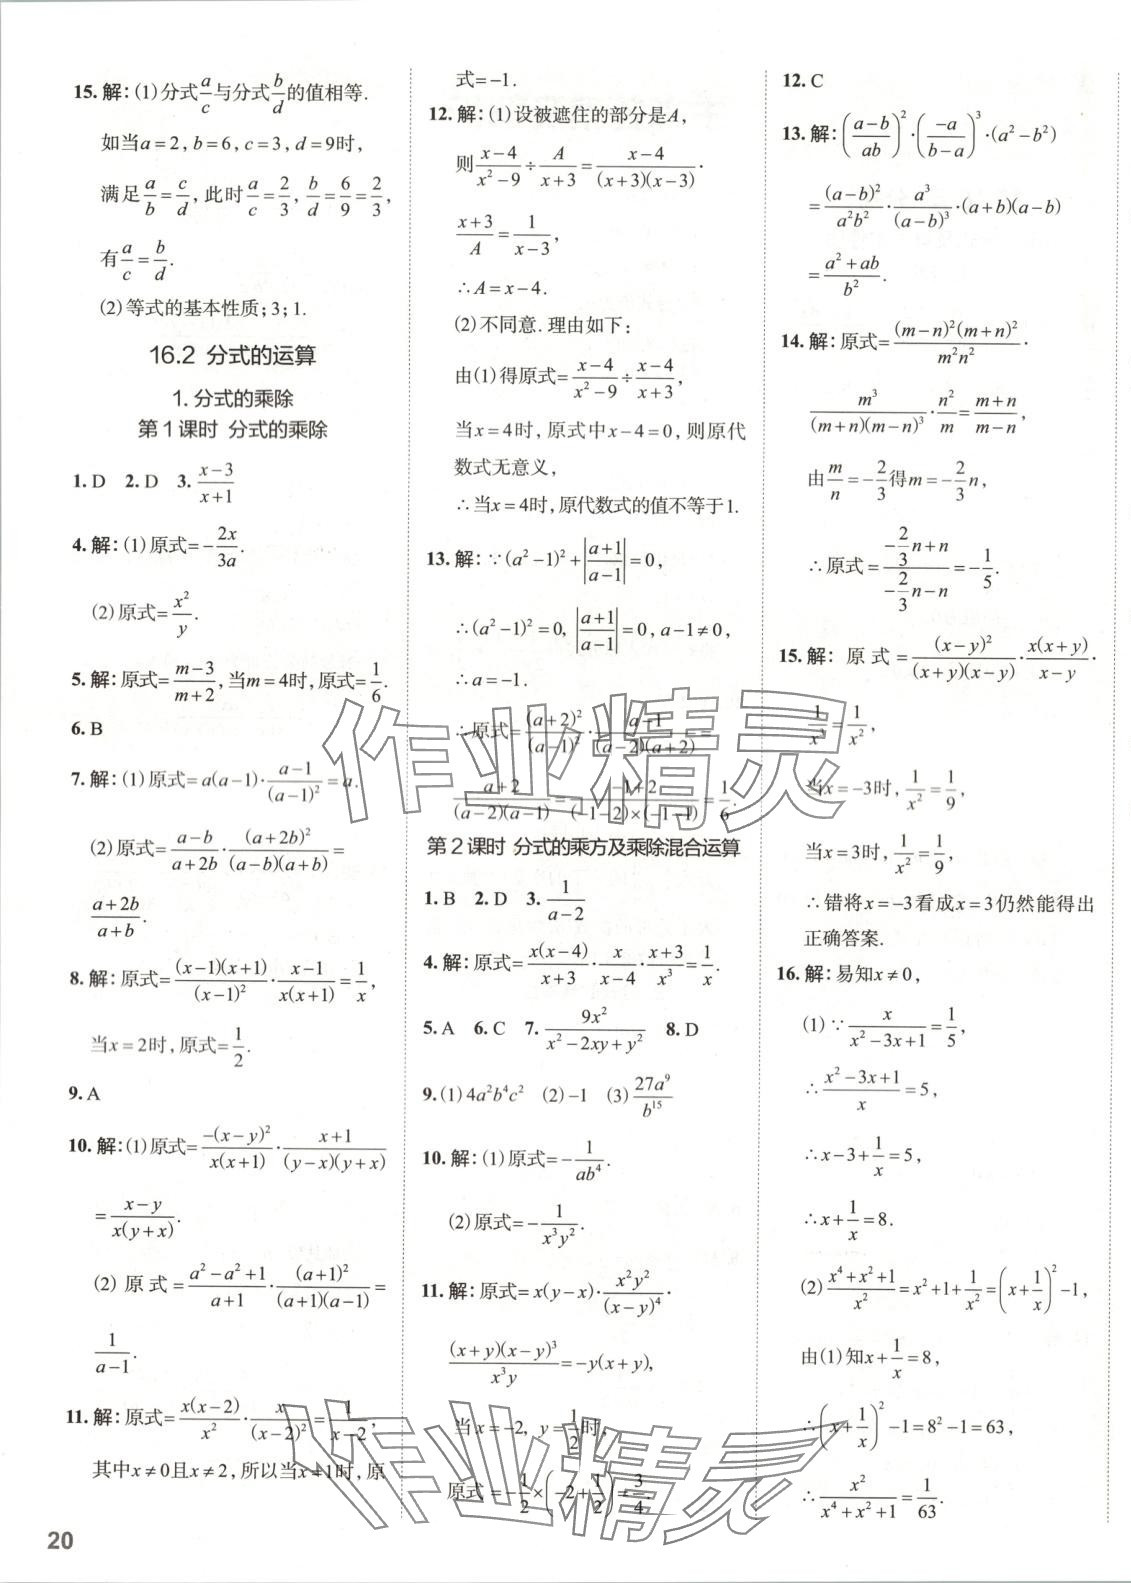 15.解:(1)分式a/c与分式b/d的值相等.
如当a=2,b=6,c=3,d=9时,
满足a/b=c/d,此时a/c=2/3,b/d=6/9=2/3,
有a/c=b/d.
(2)等式的基本性质;3;1.
16.2 分式的运算
1.分式的乘除
第1课时 分式的乘除
1.D 2.D 3.(x-3)/(x+1)
4.解:(1)原式=-2x/3a.
(2)原式=x²/y.
5.解:原式=(m-3)/(m+2),当m=4时,原式=1/6.
6.B
7.解:(1)原式=a(a-1)·(a-1)/(a-1)²=a.
(2)原式=(a-b)/(a+2b)·(a+2b)²/(a-b)(a+b)=
(a+2b)/(a+b).
8.解:原式=(x-1)(x+1)/(x-1)²·(x-1)/x(x+1)=1/x,
当x=2时,原式=1/2.
9.A
10.解:(1)原式=-(x-y)²/x(x+1)·(x+1)/(y-x)(y+x)
=(x-y)/x(y+x).
(2)原式=(a²-a²+1)/(a+1)·(a+1)²/(a+1)(a-1)=
1/(a-1).
11.解:原式=x(x-2)/x²·x/(x-2)²=1/(x-2),
其中x≠0且x≠2,所以当x=1时,原
20
式=-1.
12.解:(1)设被遮住的部分是A,
则(x-4)/(x²-9)÷A/(x+3)=(x-4)/(x+3)(x-3)·
(x+3)/A=1/(x-3),
∴A=x-4.
(2)不同意.理由如下:
由(1)得原式=(x-4)/(x²-9)÷(x-4)/(x+3),
当x=4时,原式中x-4=0,则原代
数式无意义,
∴当x=4时,原代数式的值不等于1.
13.解:∵(a²-1)²+|(a+1)/(a-1)|=0,
∴(a²-1)²=0,|(a+1)/(a-1)|=0,a-1≠0,
∴a=-1.
∴原式=(a+2)²/(a-1)²·(a-1)/(a-2)(a+2)=
(a+2)/(a-2)(a-1)=(-1+2)/(-1-2)×(-1-1)=1/6.
第2课时 分式的乘方及乘除混合运算
1.B 2.D 3.1/(a-2)
4.解:原式=x(x-4)/(x+3)·x/(x-4)·(x+3)/x³=1/x.
5.A 6.C 7.9x²/(x²-2xy+y²) 8.D
9.(1)4a²b⁴c² (2)-1 (3)27a⁹/b¹⁵
10.解:(1)原式=-1/ab⁴.
(2)原式=-1/x³y².
11.解:原式=x(y-x)·x²y²/(x-y)⁴·
(x+y)(x-y)³/x³y=-y(x+y),
当x=-2,y=1/2时,
原式=-1/2×(-2+1/2)=3/4.
12.C
13.解:((a-b)/ab)²·(-a/(b-a))³·(a²-b²)
=(a-b)²/a²b²·a³/(a-b)³·(a+b)(a-b)
=(a²+ab)/b².
14.解:原式=(m-n)²(m+n)²/m²n²·
m³/(m+n)(m-n)³·n²/m=(m+n)/(m-n),
由m/n=-2/3得m=-2/3n,
∴原式=(-2/3n+n)/(-2/3n-n)=-1/5.
15.解:原式=(x-y)²/(x+y)(x-y)·x(x+y)/(x-y)·
1/x³=1/x²,
当x=-3时,1/x²=1/9,
当x=3时,1/x²=1/9,
∴错将x=-3看成x=3仍然能得出
正确答案.
16.解:易知x≠0,
(1)∵x/(x²-3x+1)=1/5,
∴(x²-3x+1)/x=5,
∴x-3+1/x=5,
∴x+1/x=8.
(2)(x⁴+x²+1)/x²=x²+1+1/x²=(x+1/x)²-1,
由(1)知x+1/x=8,
∴(x+1/x)²-1=8²-1=63,
∴x²/(x⁴+x²+1)=1/63.
作业精灵
作业精灵